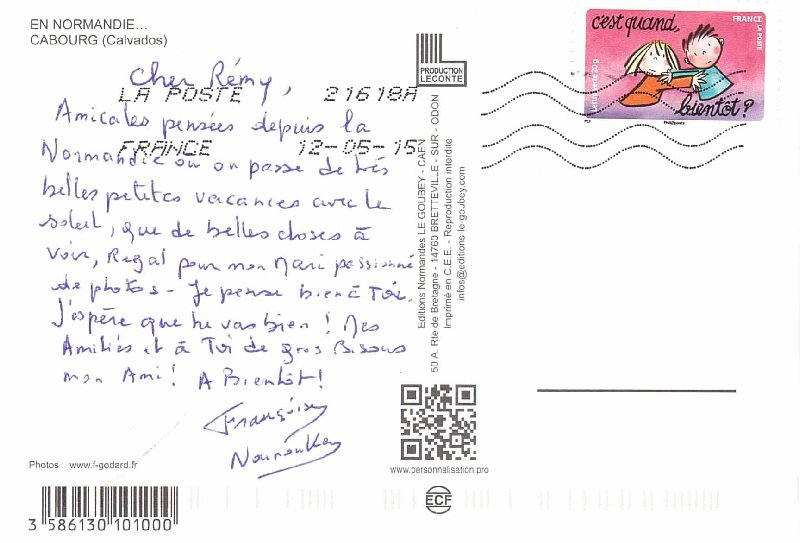 EN NORMANDIE...
CABOURG (Calvados)
PRODUCTION
LECONTE
c'est quand,
FRANCE LA POSTE
Lettre verte 20g
bientôt ?
PHIL@poste
LA POSTE 21618A
FRANCE 12-05-15
Cher Rémy,
Amicales pensées depuis la
Normandie où on passe de très
belles petites vacances avec le
soleil, que de belles choses à
voir, Régal pour mon Mari passionné
de photos - Je pense bien à Toi.
J'espère que tu vas bien ! Mes
Amitiés et à Toi de gros Bisous
mon Ami ! A Bientôt !
Françoise
Editions Normandes LE GOUBEY - CAEN
50 A, Rte de Bretagne - 14760 BRETTEVILLE - SUR - ODON
Imprimé en C.E.E. - Reproduction interdite
infos@editions-le-goubey.com
www.personnalisation.pro
Photos : www.f-godard.fr
3 586130 101000
ECF